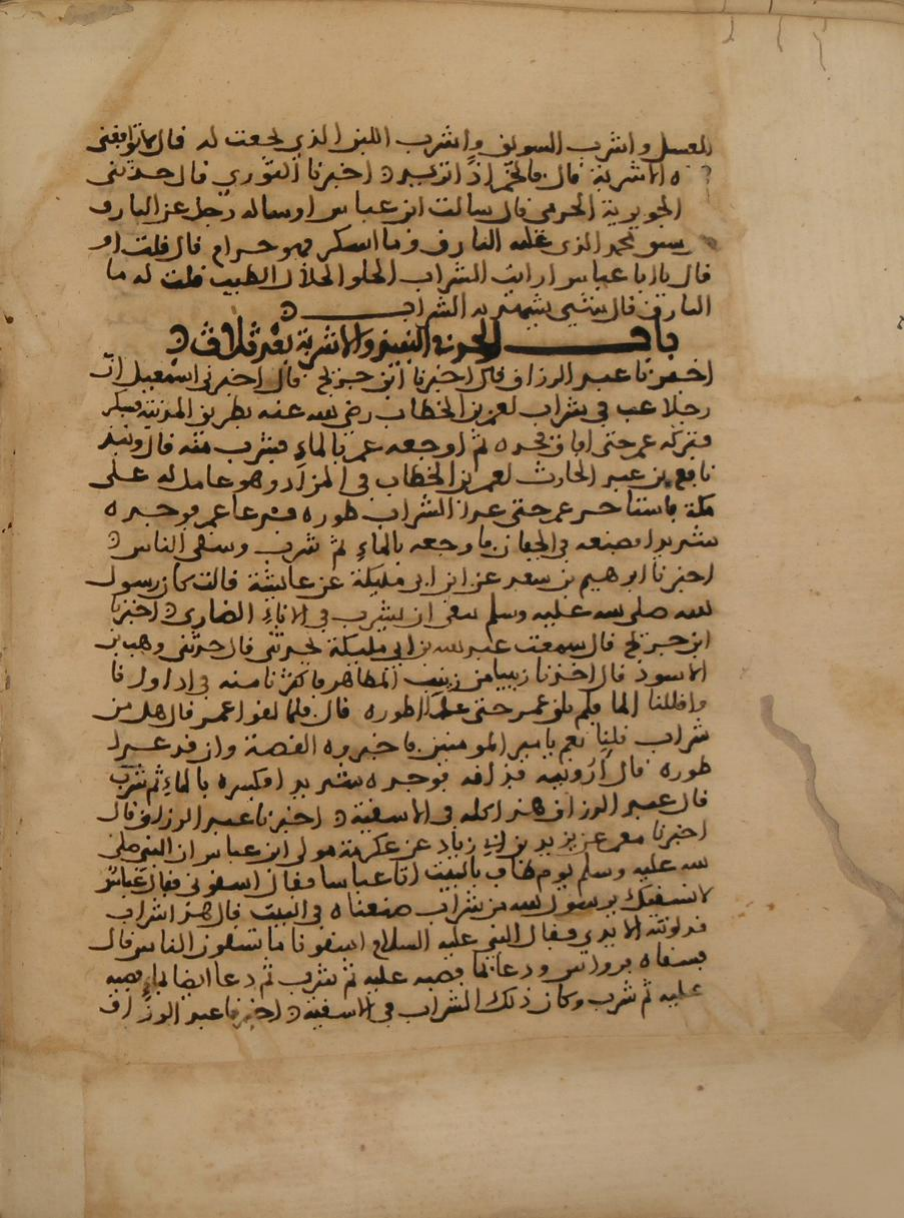 العسل واشرب السويق واشرب اللبن الذي نجعت له قال لا توافقني
ه الاشربة قال فالخمر اذا تريد اخبرنا الثوري قال حدثني
الجويرية الجرمي قال سالت ابن عباس او ساله رجل عن الباذق
سبق محمد الذي عليه الباذق وما اسكر فهو حرام قال قلت او
قال يابا عباس ارايت الشراب الحلو الحلال الطيب قلت له ما
الباذق قال شيي يشتد به الشراب
باب الحد في النبيذ والاشربة بعد ثلاث
اخبرنا عبد الرزاق قال اخبرنا ابن جريج قال اخبرني اسمعيل ان
رجلا عب في شراب لعمر بن الخطاب رضي الله عنه بطريق المدينة فسكر
فتركه عمر حتى افاق فحده ثم اوجعه عمر بالماء فشرب منه قال ونبذ
نافع بن عبد الحارث لعمر بن الخطاب في المزاد وهو عامل له على
مكة فاستاخر عمر حتى عدا الشراب طوره فدعا عمر فوجده
شديدا فصنعه في الجفان فاوجعه بالماء ثم شرب وسقى الناس
اخبرنا ابرهيم بن سعد عن ابن ابي مليكة عن عايشة قالت كان رسول
الله صلى الله عليه وسلم ان يشرب في الاناء الضاري اخبرنا
ابن جريج قال سمعت عبد الله بن ابي مليكة يحدثني قال حدثني وهب بن
الاسود قال اخذنا زبيبا من زبيب المطاهر فاكثرنا منه في اداوانا
واقللنا الما فلم نلق عمر حتى عدا طوره قال فلما لقوا عمر قال هل من
شراب قلنا نعم يامير المومنين فاخبروه القصة وان قد عدا
طوره قال اروينه فذاقه فوجده شديدا فكسره بالماء ثم شرب
قال عبد الرزاق هذا كله في الاسقية اخبرنا عبد الرزاق قال
اخبرنا معمر عن يزيد بن ابي زياد عن عكرمة مولى ابن عباس ان النبي صلى
الله عليه وسلم يوم طاف بالبيت اتا عباسا فقال اسقوني فقال عباس
لا نسقيك يرسول الله من شراب صنعناه في البيت قال هذا شراب
قد لوثته الايدي فقال النبي عليه السلام اسقونا ما تسقون الناس قال
فسقاه فزوا ودعا بما فصبه عليه ثم شرب ثم دعا ايضا بماء فصبه
عليه ثم شرب وكان ذلك الشراب في الاسقية اخبرنا عبد الرزاق